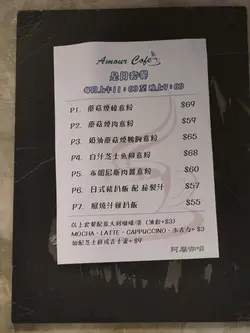 Amour Cafe
是日套餐
每日上午11:00至晚上7:00
P1. 蘑菇燴意粉 $69
P2. 蘑菇燴肉意粉 $59
P3. 奶油蘑菇燴鴨胸意粉 $65
P4. 白汁芝士魚柳意粉 $68
P5. 布朗尼斯肉醬意粉 $60
P6. 日式豬扒飯 配 秘製汁 $57
P7. 照燒汁雞扒飯 $55
以上套餐配意大利咖啡/茶 (凍飲+$3)
MOCHA、LATTE、CAPPUCCINO、朱古力+ $3
加配芝士餅或吉士蛋+ $9
阿摩咖啡